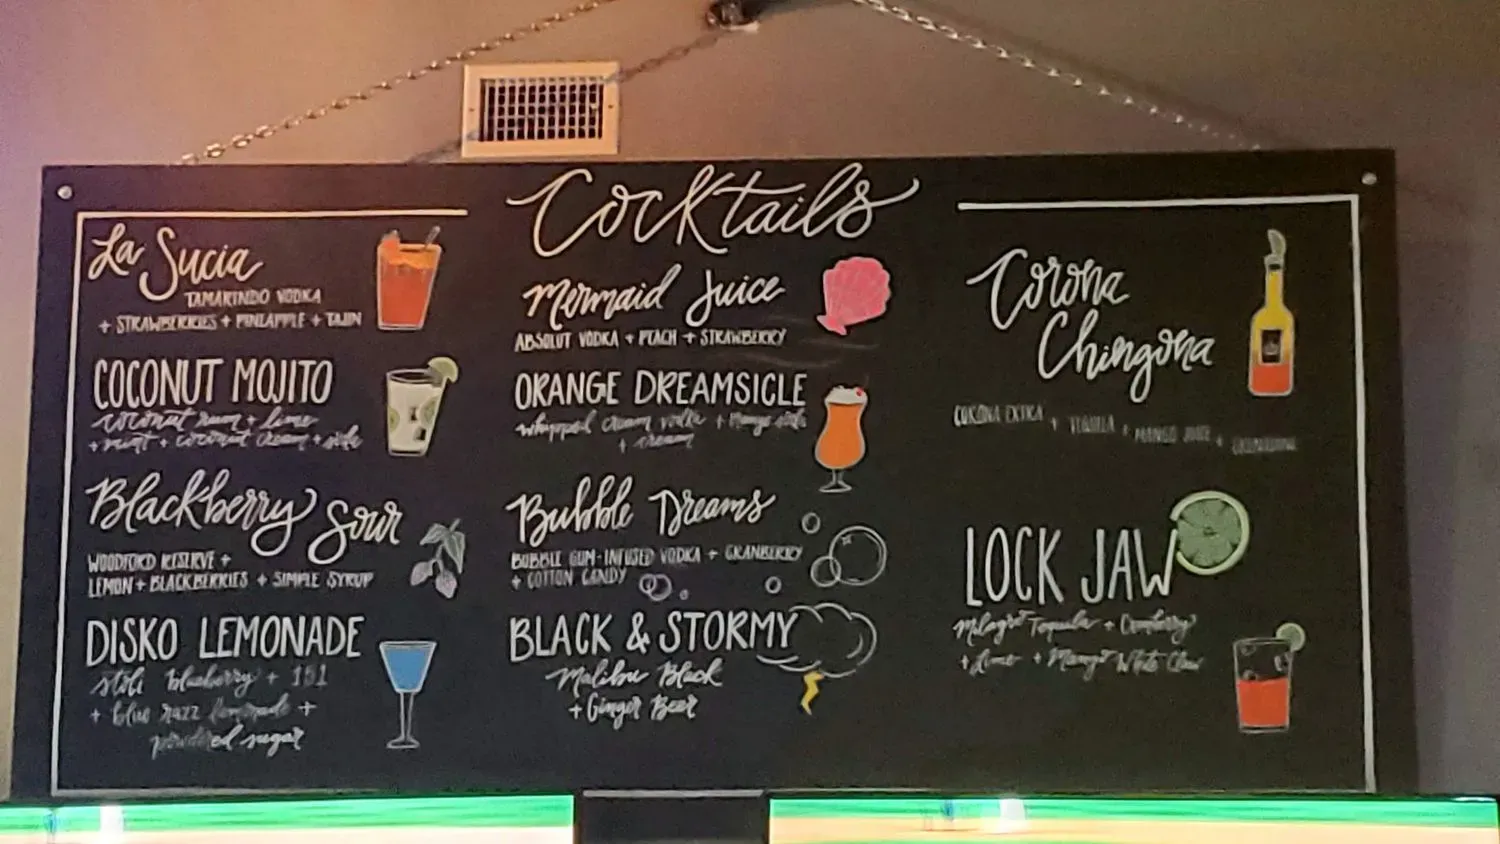 Cocktails
La Sucia
TAMARINDO VODKA
+ STRAWBERRIES + PINEAPPLE + TAJIN
COCONUT MOJITO
coconut rum + lime
+ mint + coconut cream + soda
Blackberry Sour
WOODFORD RESERVE +
LEMON + BLACKBERRIES + SIMPLE SYRUP
DISKO LEMONADE
stoli blueberry + 151
+ blue razz lemonade +
powdered sugar
Mermaid Juice
ABSOLUT VODKA + PEACH + STRAWBERRY
ORANGE DREAMSICLE
whipped cream vodka + orange soda
+ cream
Bubble Dreams
BUBBLE GUM-INFUSED VODKA + CRANBERRY
+ COTTON CANDY
BLACK & STORMY
Malibu Black
+ Ginger Beer
Corona
Chingona
CORONA EXTRA + TEQUILA + MANGO JUICE + GRENADINE
LOCK JAW
Milagro Tequila + Cranberry
+ Lime + Mango White Claw